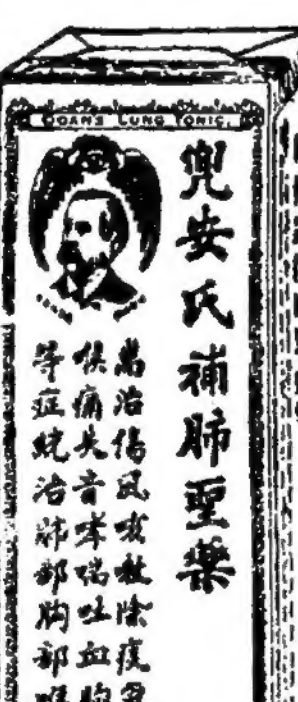 DOAN'S LUNG TONIC.
兜安氏補肺聖藥
治傷風咳嗽除痰
喉痛失音哮喘吐血胸
等症統治肺部胸部喉